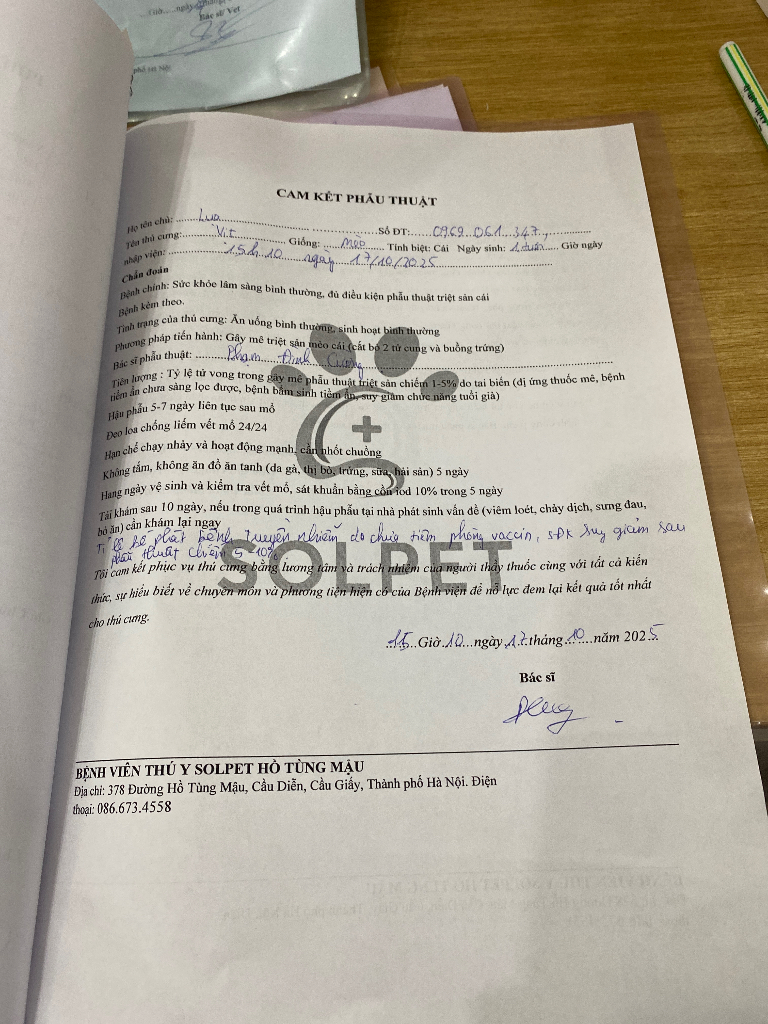 Giờ.....ngày
Bác sĩ/ Vet
phố Hà Nội
CAM KẾT PHẪU THUẬT
Họ tên chủ: Lụa Số ĐT: 0969 061 347
Tên thú cưng: Vịt Giống: Mèo Tính biệt: Cái Ngày sinh: 1 tuổi Giờ ngày
nhập viện: 15h10 ngày 17/10/2025
Chẩn đoán
Bệnh chính: Sức khỏe lâm sàng bình thường, đủ điều kiện phẫu thuật triệt sản cái
Bệnh kèm theo.
Tình trạng của thú cưng: Ăn uống bình thường, sinh hoạt bình thường
Phương pháp tiến hành: Gây mê triệt sản mèo cái (cắt bỏ 2 tử cung và buồng trứng)
Bác sĩ phẫu thuật: Phạm Đình Cương
Tiên lượng : Tỷ lệ tử vong trong gây mê phẫu thuật triệt sản chiếm 1-5% do tai biến (dị ứng thuốc mê, bệnh
tiềm ẩn chưa sàng lọc được, bệnh bẩm sinh tiềm ẩn, suy giảm chức năng tuổi già)
Hậu phẫu 5-7 ngày liên tục sau mổ
Đeo loa chống liếm vết mổ 24/24
Hạn chế chạy nhảy và hoạt động mạnh, cần nhốt chuồng
Không tắm, không ăn đồ ăn tanh (da gà, thị bò, trứng, sữa, hải sản) 5 ngày
Hang ngày vệ sinh và kiểm tra vết mổ, sát khuẩn bằng cồn iod 10% trong 5 ngày
Tái khám sau 10 ngày, nếu trong quá trình hậu phẫu tại nhà phát sinh vấn đề (viêm loét, chảy dịch, sưng đau,
bỏ ăn) cần khám lại ngay
Tỉ lệ bệ phát bệnh truyền nhiễm do chưa tiêm phòng vaccin, sđk suy giảm sau
phẫu thuật chiếm 5-10%
Tôi cam kết phục vụ thú cưng bằng lương tâm và trách nhiệm của người thầy thuốc cùng với tất cả kiến
thức, sự hiểu biết về chuyên môn và phương tiện hiện có của Bệnh viện để nỗ lực đem lại kết quả tốt nhất
cho thú cưng.
SOLPET
15 Giờ 10 ngày 17 tháng 10 năm 2025
Bác sĩ
BỆNH VIÊN THÚ Y SOLPET HỒ TÙNG MẬU
Địa chỉ: 378 Đường Hồ Tùng Mậu, Cầu Diễn, Cầu Giấy, Thành phố Hà Nội. Điện
thoại: 086.673.4558